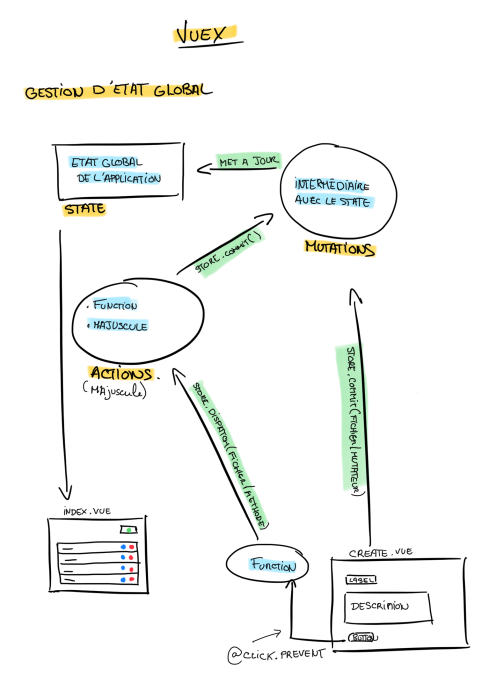 VUEX
GESTION D'ETAT GLOBAL
ETAT GLOBAL
DE L'APPLICATION
STATE
MET A JOUR
INTERMÉDIAIRE
AVEC LE STATE
MUTATIONS
STORE.COMMIT()
. FUNCTION
. MAJUSCULE
ACTIONS.
(MAjuscule)
STORE.DISPATCH(FICHIER/METHODE)
STORE.COMMIT(FICHIER/MUTATEUR)
INDEX.VUE
FUNCTION
CREATE.VUE
LABEL
DESCRIPTION
BUTTON
@CLICK.PREVENT